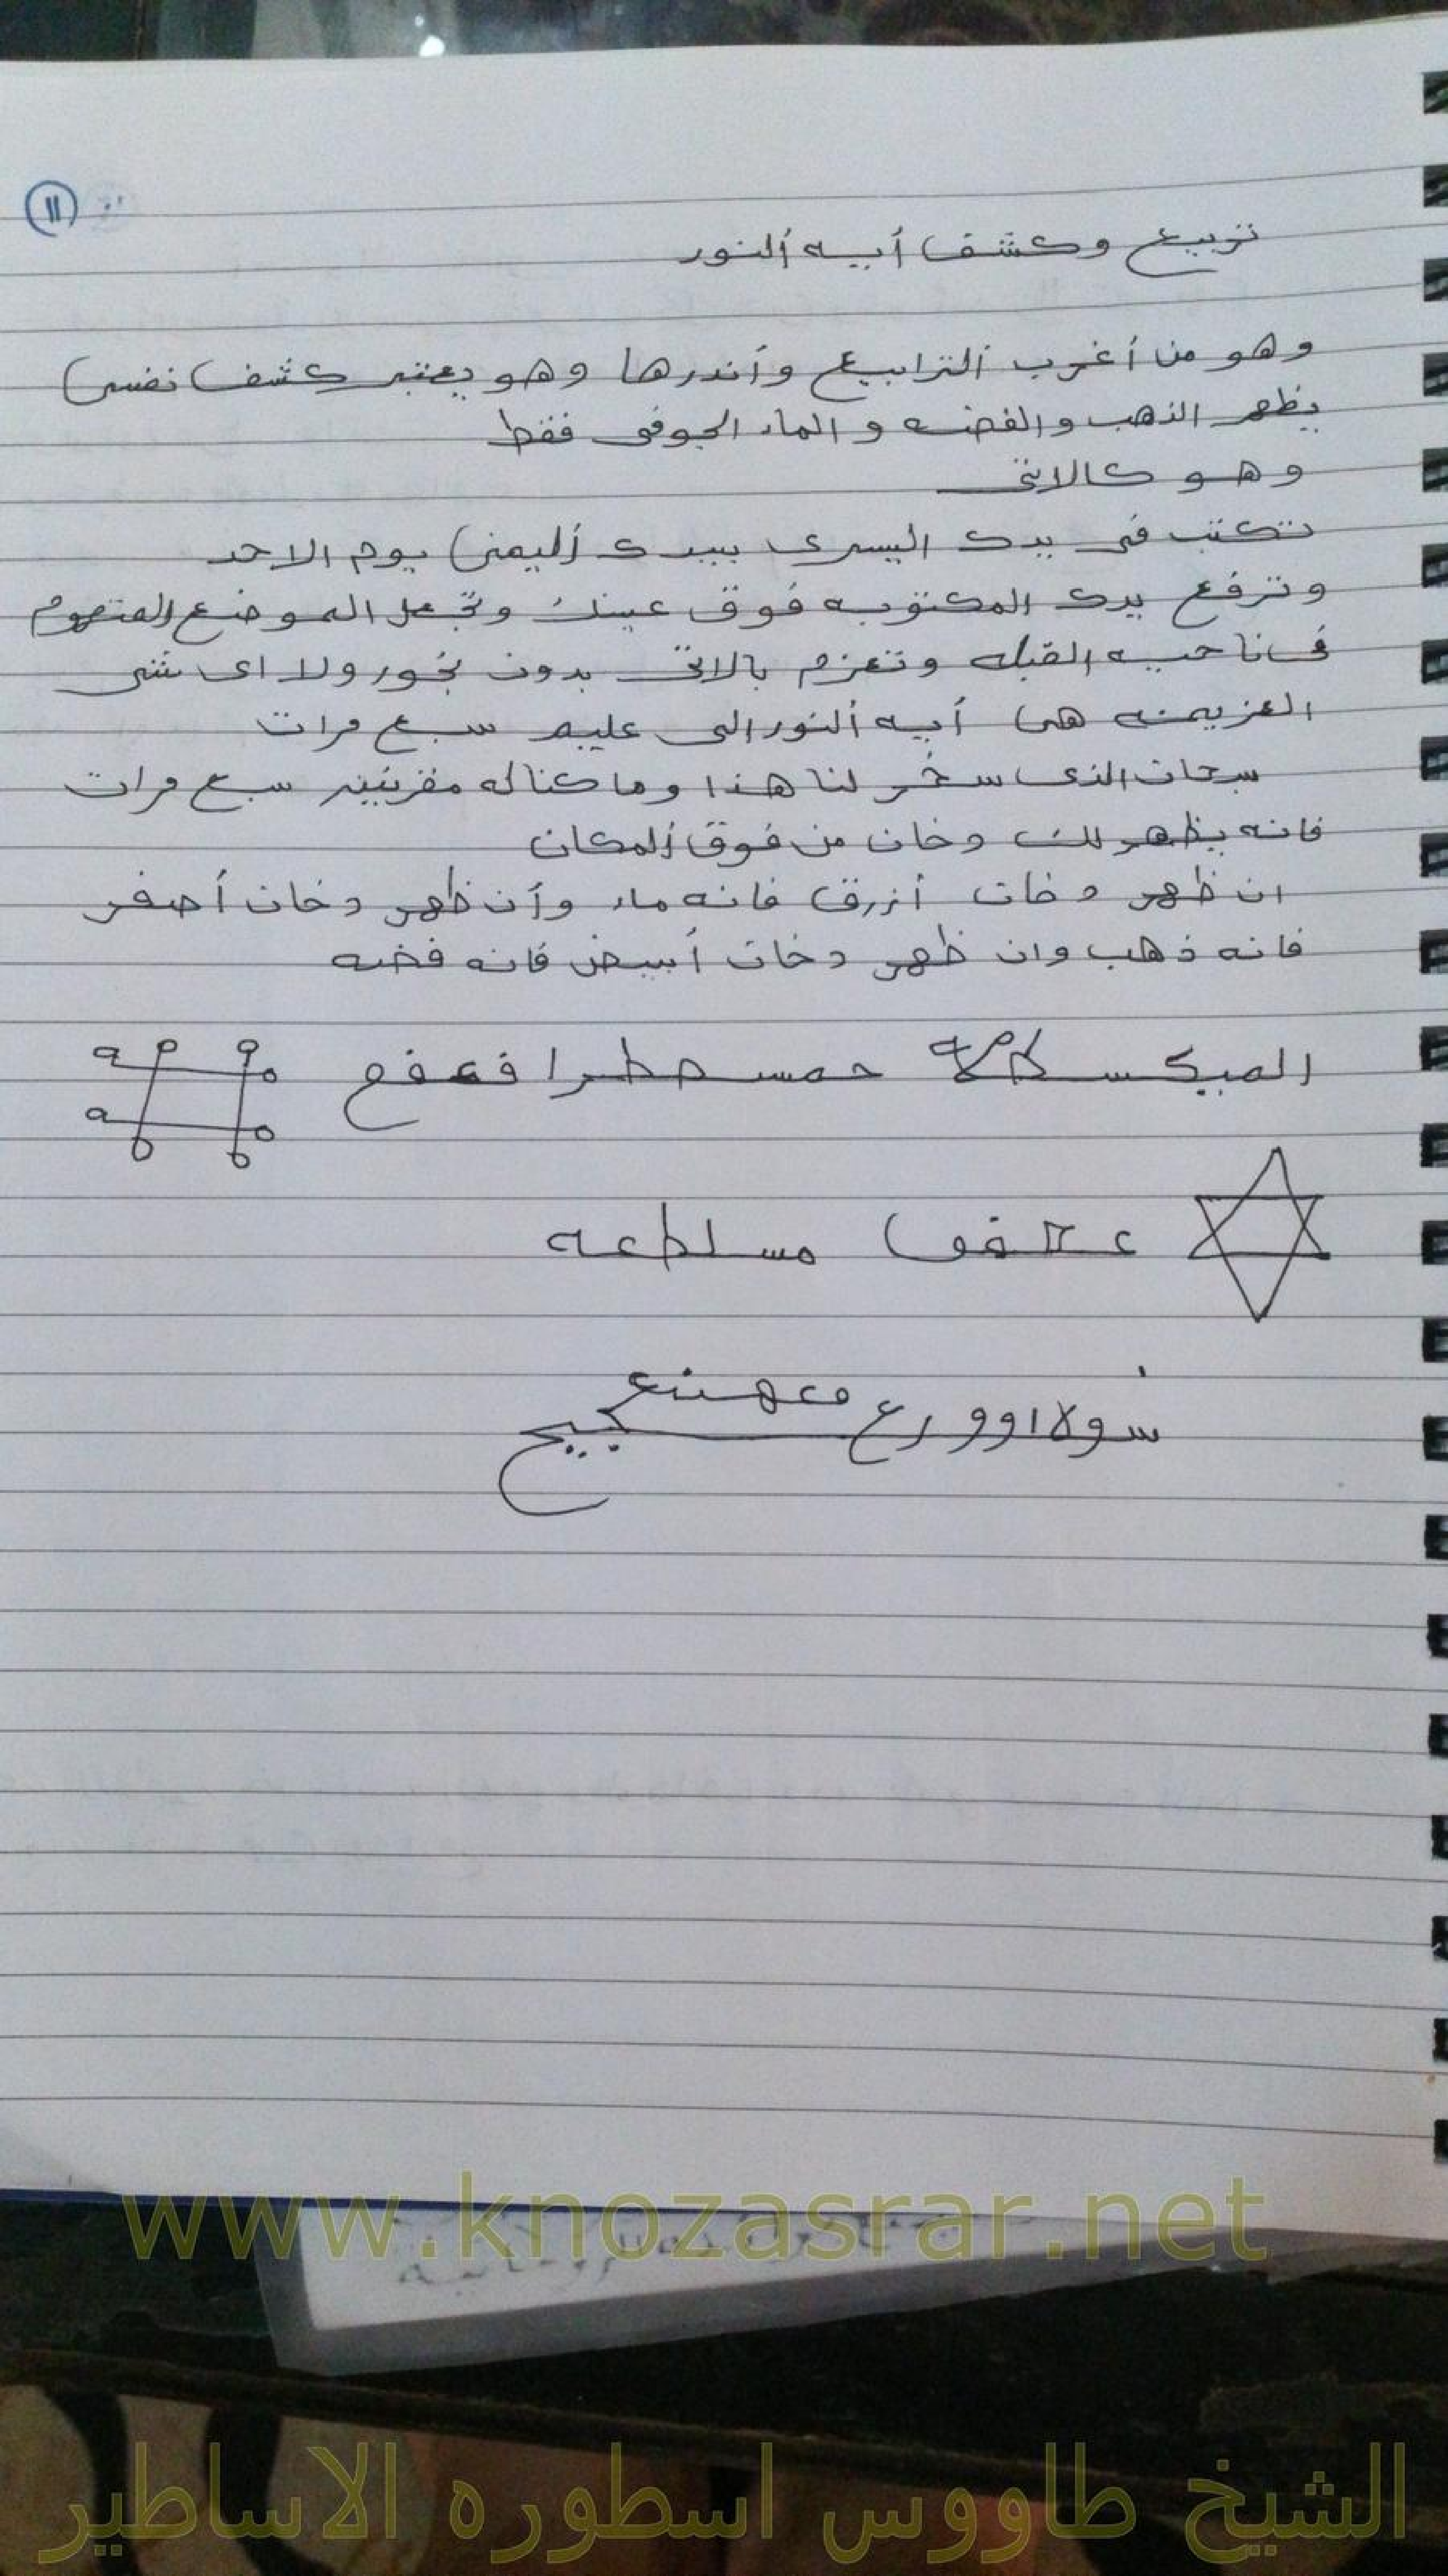 11
تربيع وكشف أيه ألنور
وهو من أغرب ألترابيع وأندرها وهو يعتبر كشف نفسى
يظهر الذهب والفضه والماء الجوفى فقط
وهو كالاتى
تكتب فى يدك اليسرى بيدك أليمنى يوم الاحد
وترفع يدك المكتوبه فوق عينك وتجعل الموضع المتهوم
فى ناحيه القبله وتعزم بالاتى بدون بخور ولا اى شى
العزيمه هى أيه ألنور الى عليم سبع مرات
سبحان الذى سخر لنا هذا وما كنا له مقرنين سبع مرات
فانه يظهر لك دخان من فوق ألمكان
ان ظهر دخان أزرق فانه ماء وأن ظهر دخان أصفر
فانه ذهب وان ظهر دخان أبيض فانه فضه
مسلطعه
www.knozasrar.net
الشيخ طاووس اسطوره الاساطير